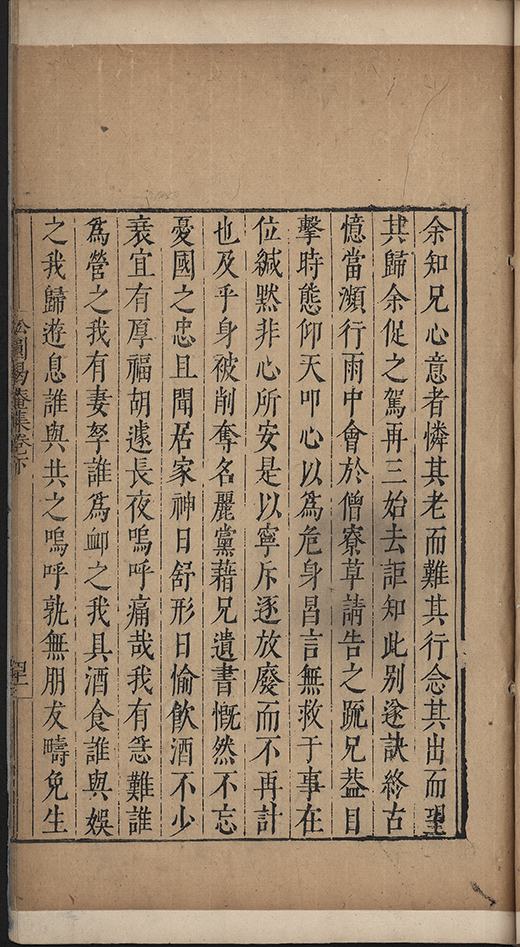 余知兄心意者憐其老而難其行念其出而望
其歸余促之駕再三始去詎知此别遂訣終古
憶當瀕行雨中會於僧寮草請告之疏兄葢目
擊時態仰天叩心以為危身昌言無救于事在
位緘黙非心所安是以寧斥逐放廢而不再計
也及乎身被削奪名麗黨藉兄遺書慨然不忘
憂國之忠且聞居家神日舒形日愉飲酒不少
衰宜有厚福胡遽長夜嗚呼痛哉我有急難誰
為營之我有妻孥誰為卹之我具酒食誰與娛
之我歸遊息誰與共之嗚呼孰無朋友疇免生
圓易菴集卷下